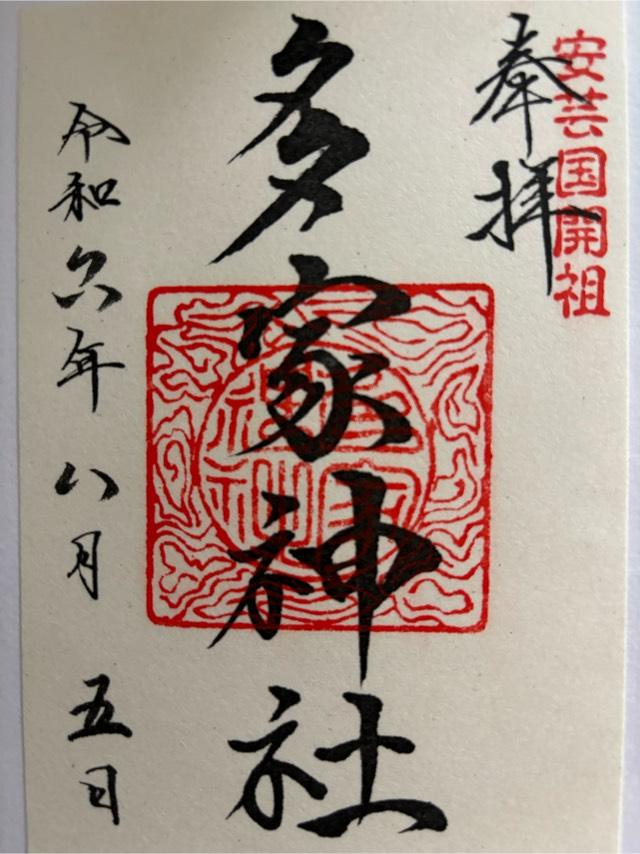 安芸国開祖
奉拝
多家神社
多家神社
令和六年 八月 五日